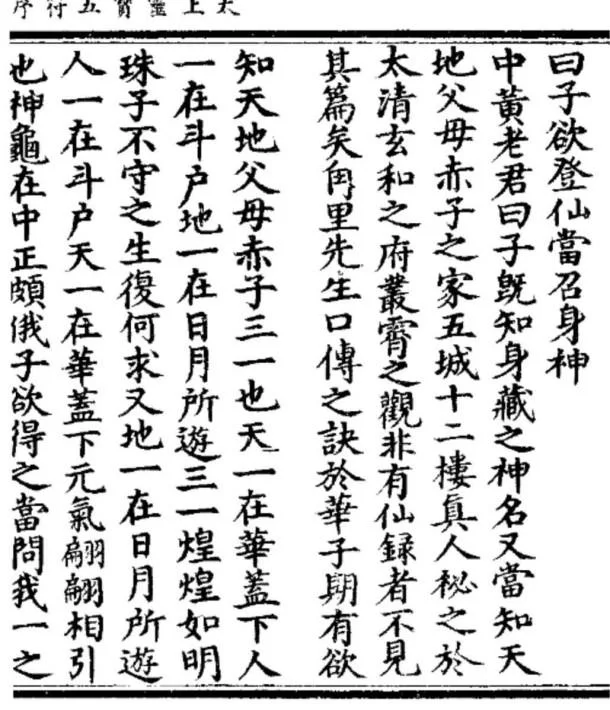 太上靈寶五符序
曰子欲登仙當召身神
中黃老君曰子旣知身藏之神名又當知天
地父母赤子之家五城十二樓眞人秘之於
太清玄和之府叢霄之觀非有仙録者不見
其篇矣甪里先生口傳之訣於華子期有欲
知天地父母赤子三一也天一在華蓋下人
一在斗戶地一在日月所遊三一煌煌如明
珠子不守之生復何求又地一在日月所遊
人一在斗戶天一在華蓋下元氣翩翩相引
也神龜在中正頗俄子欲得之當問我一之